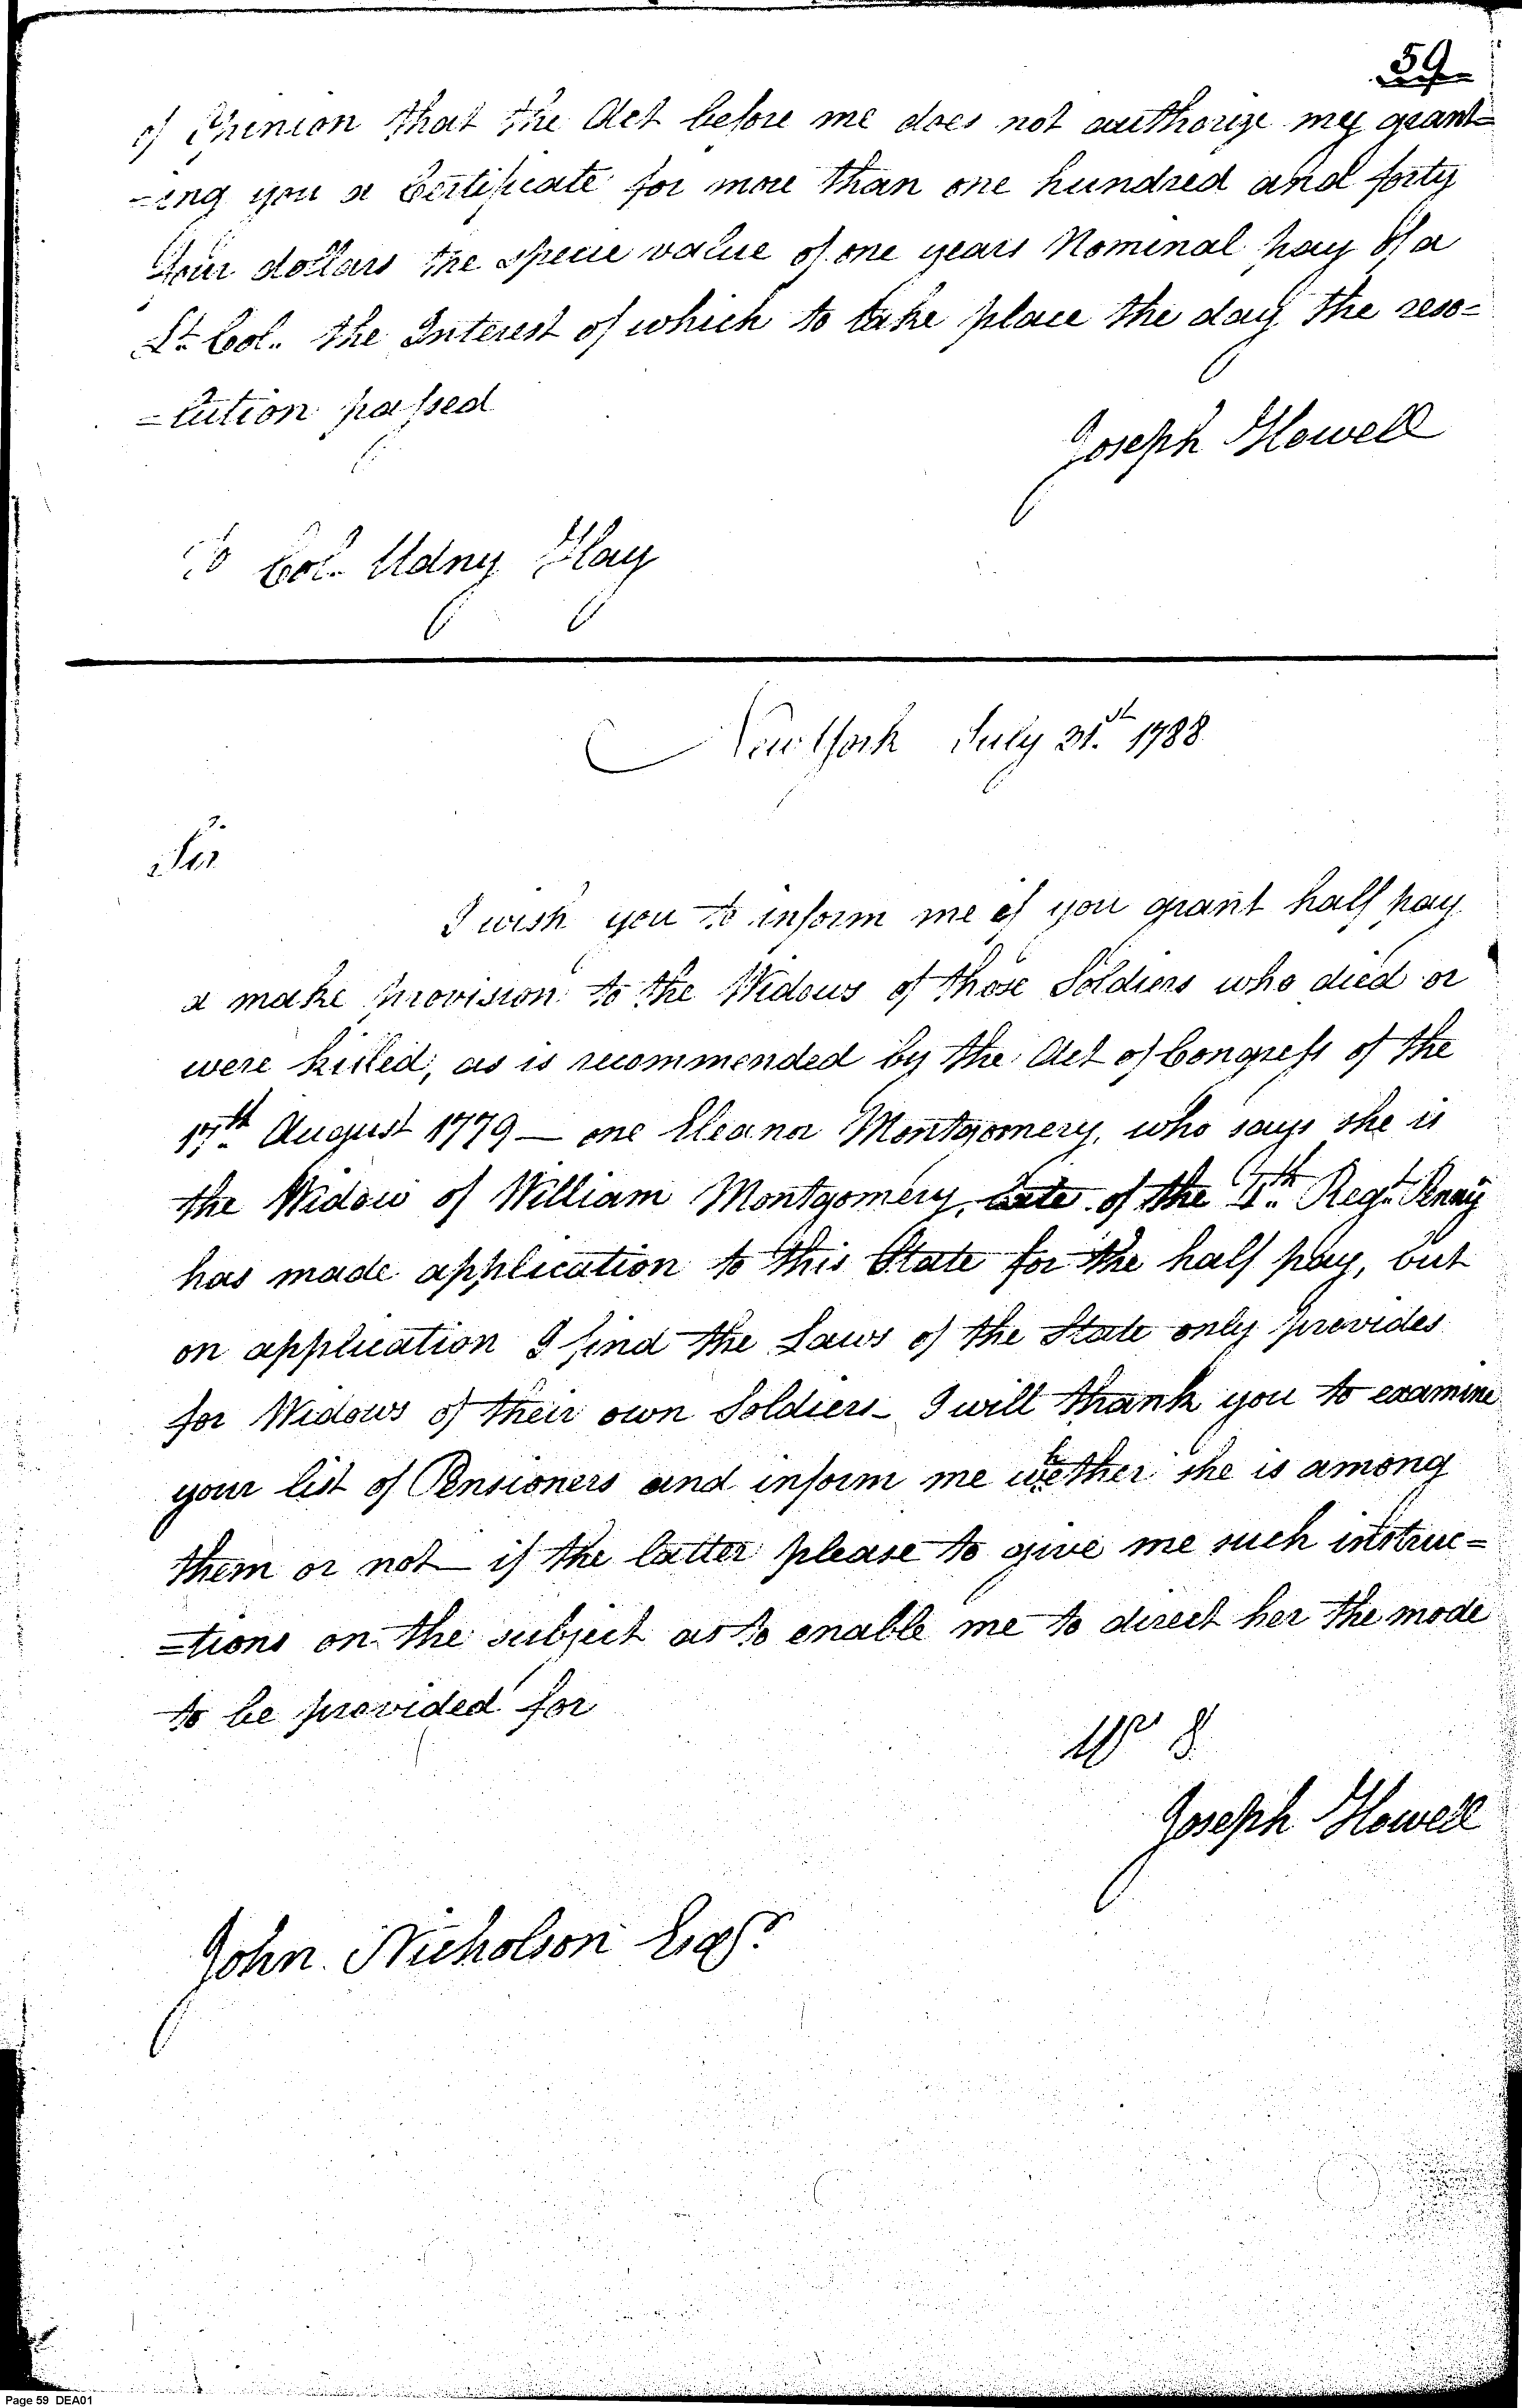 59
of Opinion that the Act before me does not authorize my grant=
-ing you a Certificate for more than one hundred and forty
four dollars the specie value of one years Nominal pay of a
Lt. Col. the Interest of which to take place the day the reso=
=lution passed
Joseph Howell
To Col. Udny Hay
New York July 31.st 1788
Sir
I wish you to inform me if you grant half pay
a make provision to the Widows of those Soldiers who died or
were killed, as is recommended by the Act of Congress of the
17th August 1779 — one Eleanor Montgomery, who says she is
the Widow of William Montgomery, late of the Regt.
has made application to this State for the half pay, but
on application I find the Laws of the State only provides
for Widows of their own Soldiers - I will thank you to examine
your list of Pensioners and inform me whether she is among
them or not — if the latter please to give me such instruc=
=tions on the subject as to enable me to direct her the mode
to be provided for
Joseph Howell
John Nicholson Esqr.
Page 59 DEA01